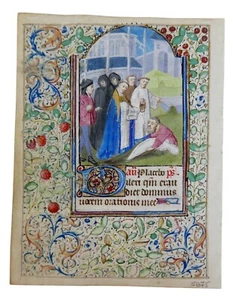 añ. Placebo ps.
Dilexi qm̄ exau
diet dominus
vocem orationis mee